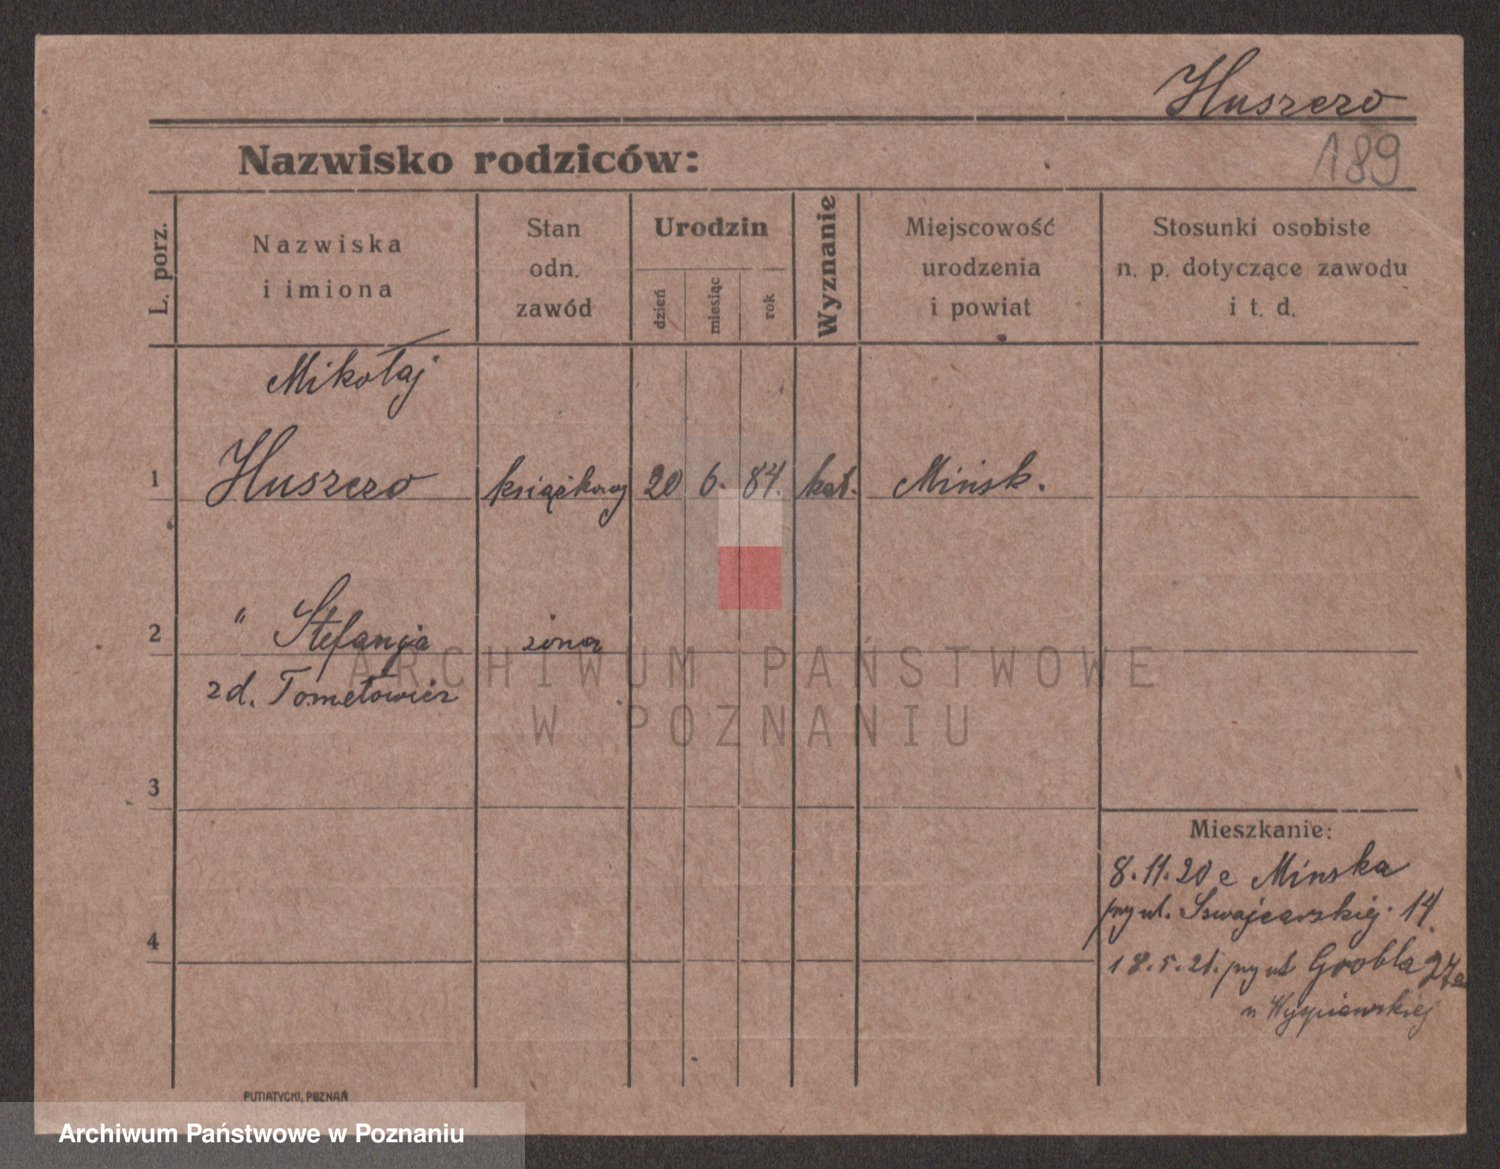 Huszczo
189
Nazwisko rodziców:
L. porz.
Nazwiska
i imiona
Stan
odn.
zawód
Urodzin
dzień
miesiąc
rok
Wyznanie
Miejscowość
urodzenia
i powiat
Stosunki osobiste
n. p. dotyczące zawodu
i t. d.
Mikołaj
1 Huszczo książkowy 20 6. 84. kat. Mińsk.
2 " Stefanja żona
zd. Tomełowicz
3
4
Mieszkanie:
8.11.20 z Mińska
przy ul. Szwajcarskiej 14.
18.5.21. przy ul Grobla 27a
u Wyspiańskiej
PUTIATYCKI, POZNAŃ
ARCHIWUM PAŃSTWOWE
W POZNANIU
Archiwum Państwowe w Poznaniu